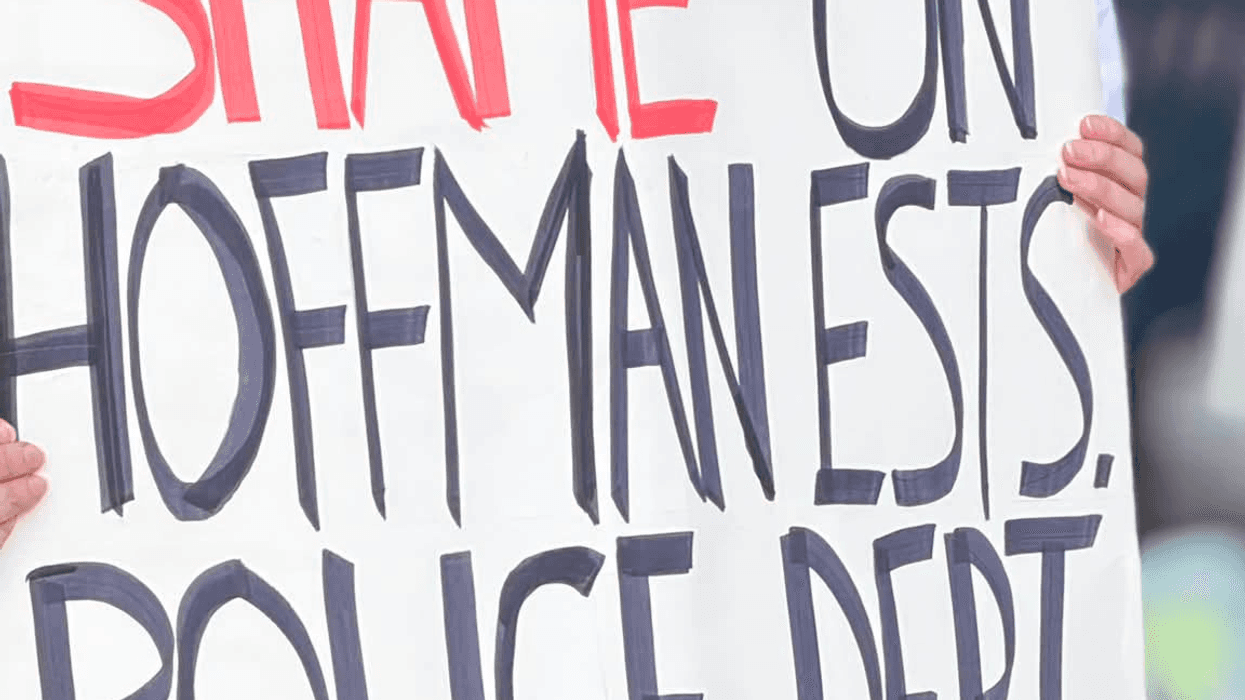 SHAME ON
HOFFMAN ESTS.
POLICE DEPT.